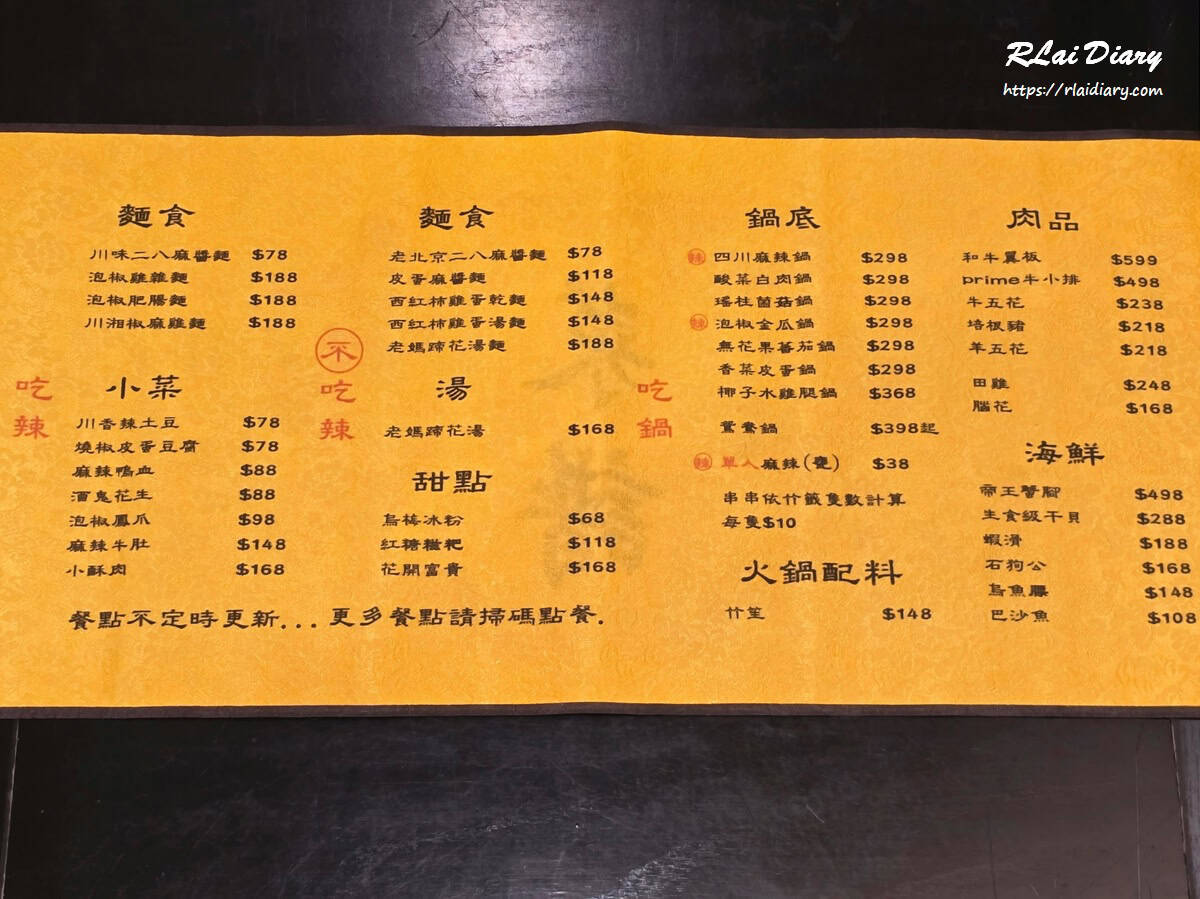 RLai Diary
https://rlaidiary.com
吃辣
麵食
川味二八麻醬麵 $78
泡椒雞雜麵 $188
泡椒肥腸麵 $188
川湘椒麻雞麵 $188
小菜
川香辣土豆 $78
燒椒皮蛋豆腐 $78
麻辣鴨血 $88
酒鬼花生 $88
泡椒鳳爪 $98
麻辣牛肚 $148
小酥肉 $168
不吃辣
麵食
老北京二八麻醬麵 $78
皮蛋麻醬麵 $118
西紅柿雞蛋乾麵 $148
西紅柿雞蛋湯麵 $148
老媽蹄花湯麵 $188
湯
老媽蹄花湯 $168
甜點
烏梅冰粉 $68
紅糖糍粑 $118
花開富貴 $168
餐點不定時更新...更多餐點請掃碼點餐.
吃鍋
鍋底
辣 四川麻辣鍋 $298
酸菜白肉鍋 $298
瑤柱菌菇鍋 $298
辣 泡椒金瓜鍋 $298
無花果蕃茄鍋 $298
香菜皮蛋鍋 $298
椰子水雞腿鍋 $368
鴛鴦鍋 $398起
辣 單人麻辣(甕) $38
串串依竹籤隻數計算
每隻$10
火鍋配料
竹笙 $148
肉品
和牛翼板 $599
prime牛小排 $498
牛五花 $238
培根豬 $218
羊五花 $218
田雞 $248
腦花 $168
海鮮
帝王蟹腳 $498
生食級干貝 $288
蝦滑 $188
石狗公 $168
烏魚膘 $148
巴沙魚 $108